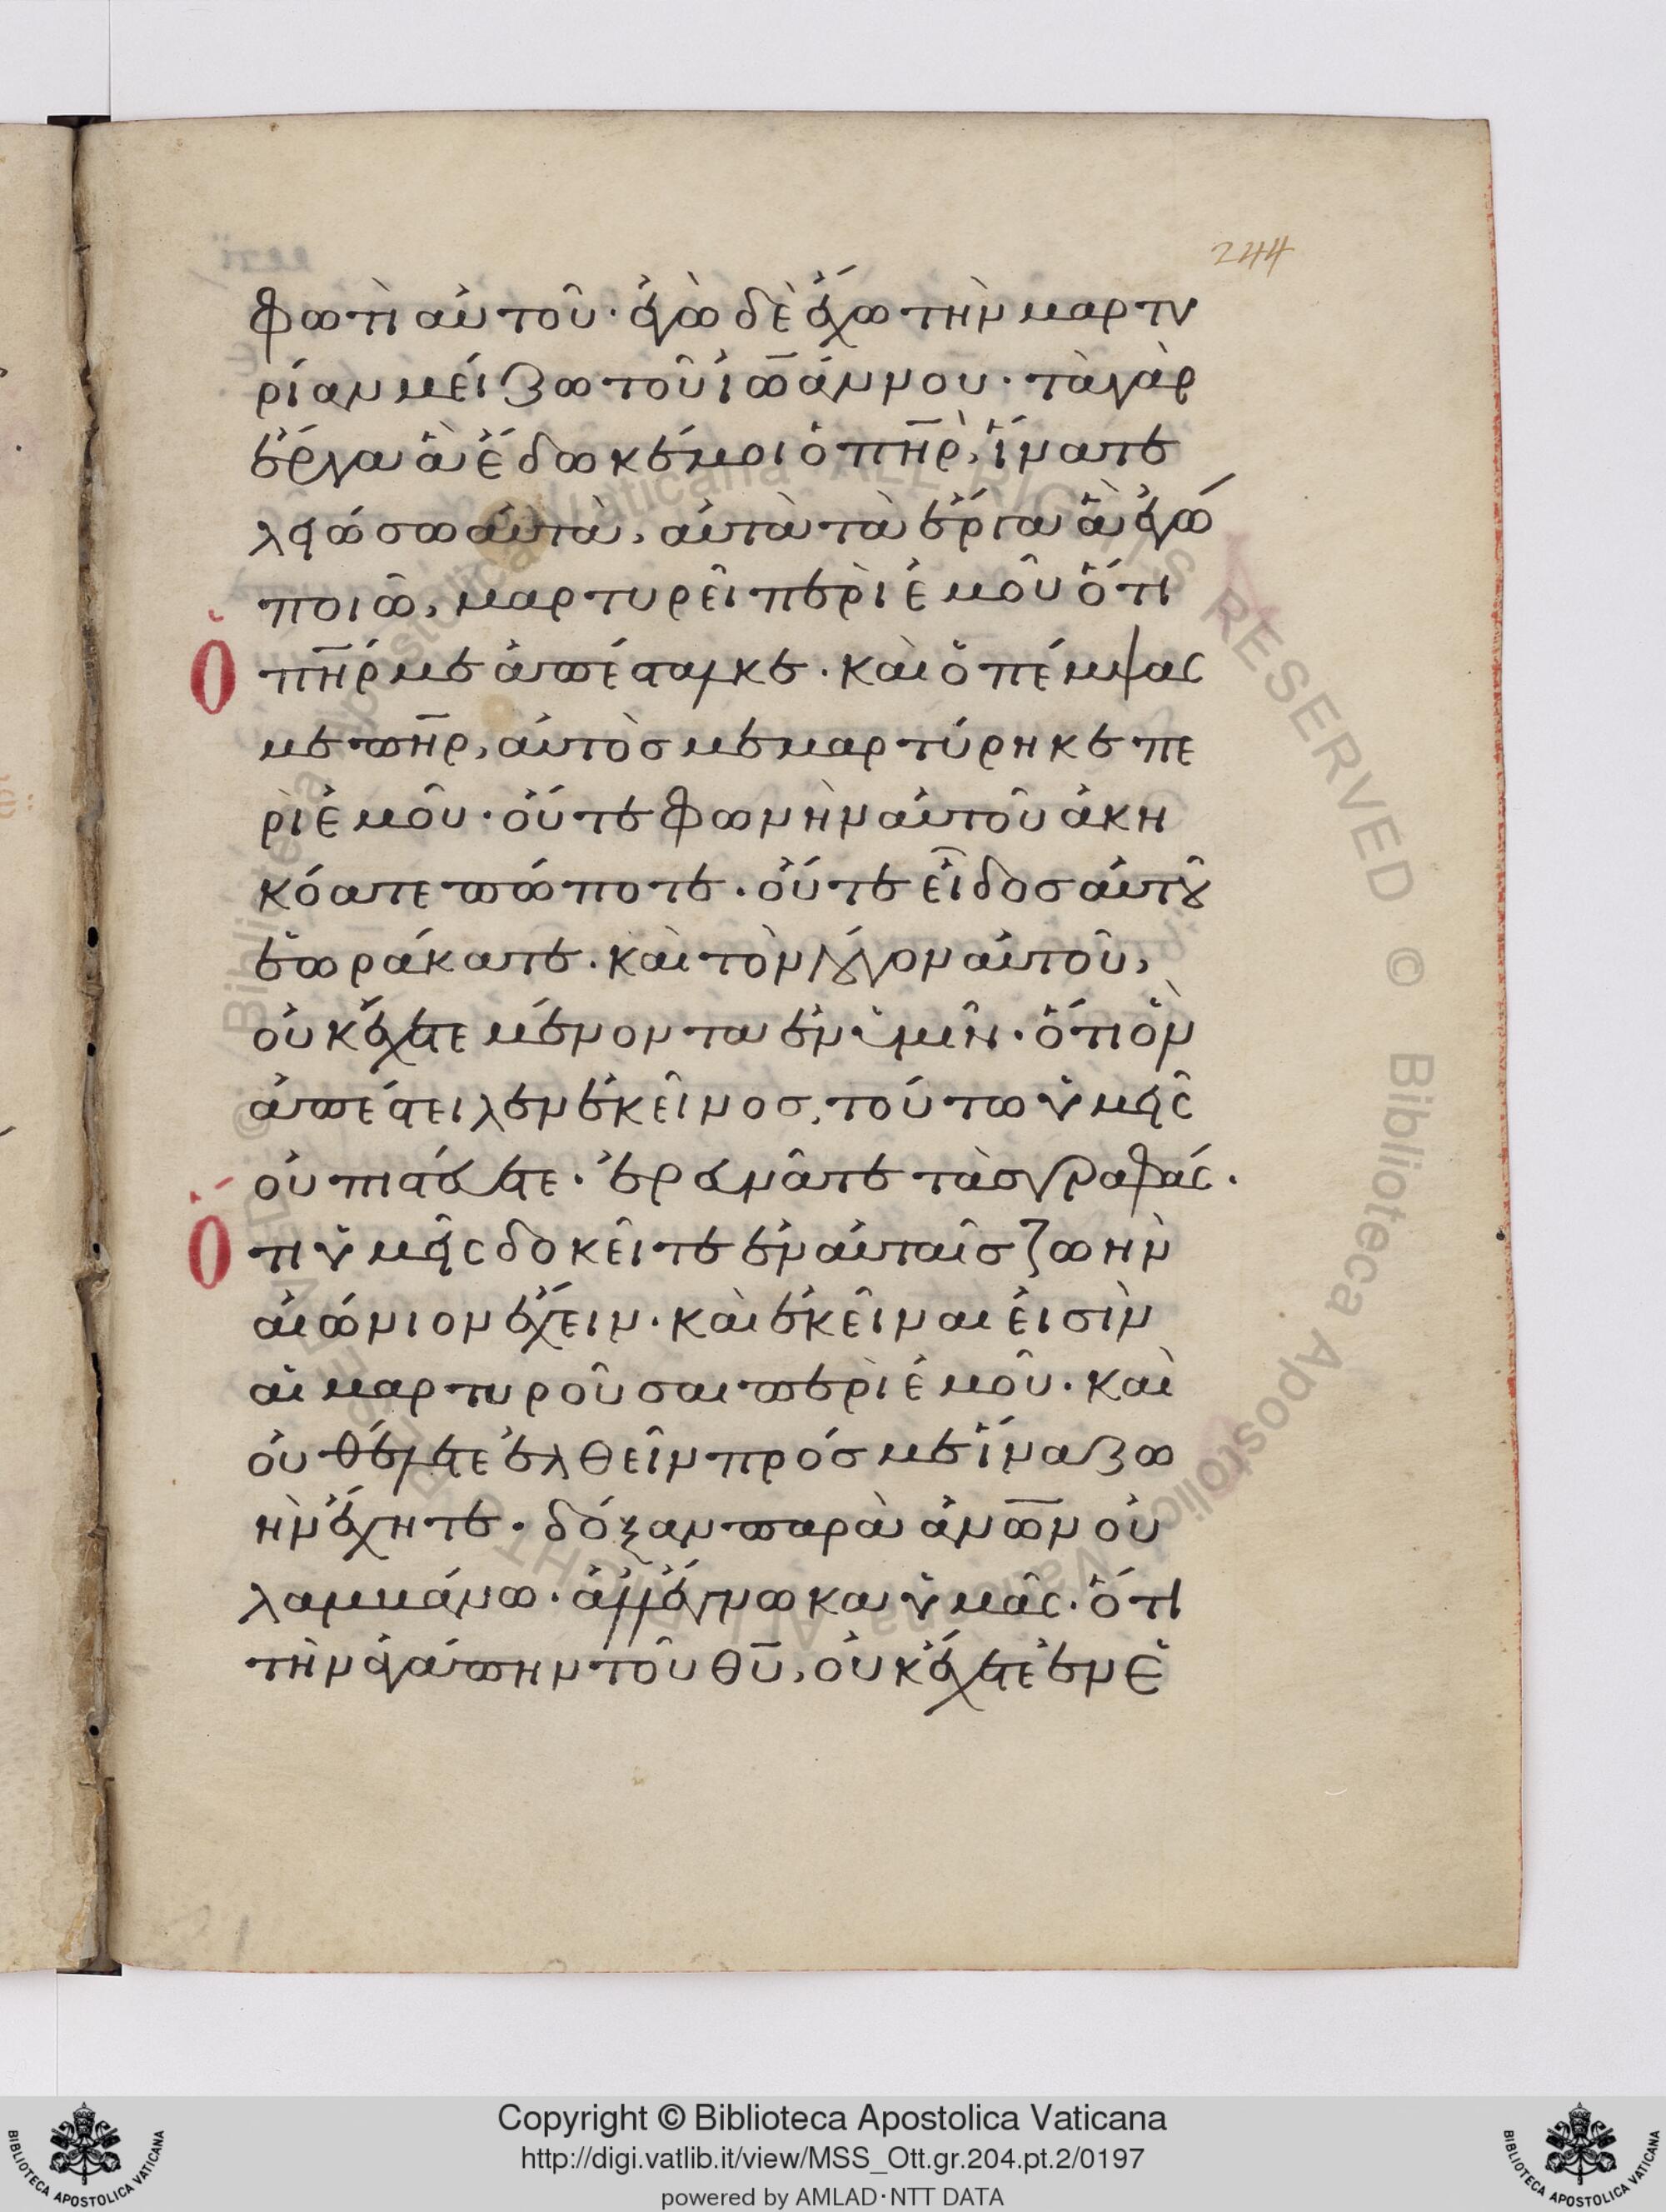 244
φωτὶ αὐτοῦ· ἐγὼ δὲ ἔχω τὴν μαρτυ
ρίαν μείζω τοῦ ἰωάννου· τὰ γὰρ
ἔργα ἃ ἔδωκέ μοι ὁ πῆρ, ἵνα τε
λειώσω αὐτὰ, αὐτὰ τὰ ἔργα ἃ ἐγώ
ποιῶ, μαρτυρεῖ περὶ ἐμοῦ ὅτι
Ὁ πήρ με ἀπέσταλκε· καὶ ὁ πέμψας
με πηρ, αὐτὸσ μεμαρτύρηκε πε
ρὶ ἐμοῦ· οὔτε φωνὴν αὐτοῦ ἀκη
κόατε πώποτε· οὔτε εἶδοσ αὐτοῦ
ἑωράκατε· καὶ τὸν λόγον αὐτοῦ,
οὐκ ἔχετε μένοντα ἐν ὑμῖν· ὅτι ὃν
ἀπέστειλεν ἐκεῖνοσ, τούτω ὑμεῖς
οὐ πιστεύετε· ἐρευνᾶτε τὰσ γραφάς·
Ὅτι ὑμεῖς δοκεῖτε ἐν αὐταῖσ ζωὴν
αἰώνιον ἔχειν· καὶ ἐκεῖναι εἰσὶν
αἱ μαρτυροῦσαι περὶ ἐμοῦ· καὶ
οὐ θέλετε ἐλθεῖν πρόσ με ἵνα ζω
ὴν ἔχητε· δόξαν παρὰ ἀνων οὐ
λαμβάνω· ἀλλ' ἔγνωκα ὑμᾶς· ὅτι
τὴν ἀγάπην τοῦ θυ, οὐκ ἔχετε ἐν ἑ
© Biblioteca Apostolica Vaticana ALL RIGHTS RESERVED © Biblioteca Apostolica Vaticana ALL RIGHTS RESERVED
BIBLIOTECA APOSTOLICA VATICANA
Copyright © Biblioteca Apostolica Vaticana
http://digi.vatlib.it/view/MSS_Ott.gr.204.pt.2/0197
powered by AMLAD·NTT DATA
BIBLIOTECA APOSTOLICA VATICANA